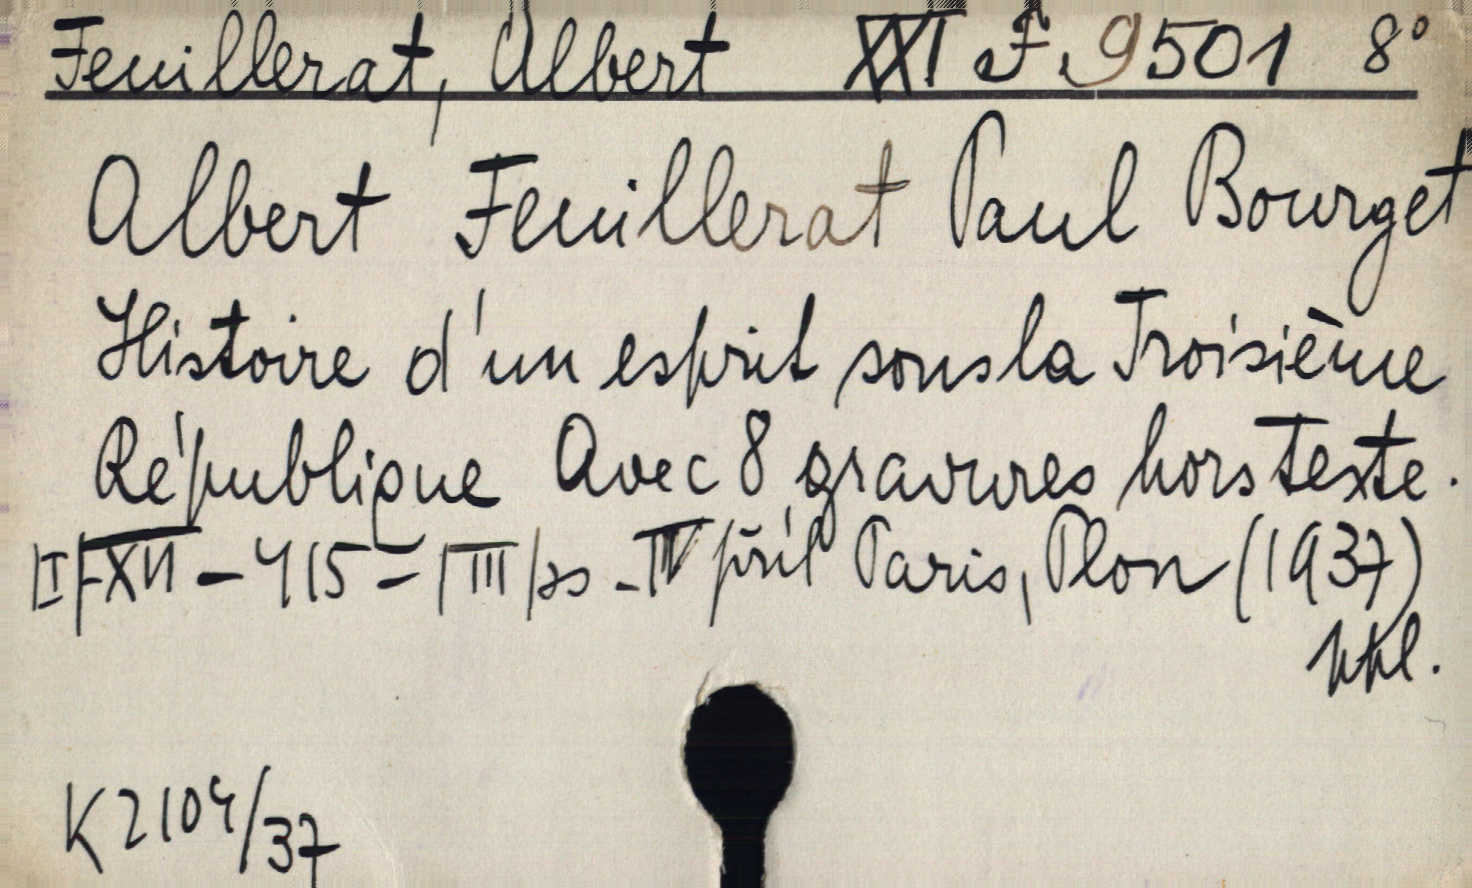 Feuillerat, Albert XXI F. 9501 8°
Albert Feuillerat Paul Bourget
Histoire d'un esprit sous la Troisième
République Avec 8 gravures hors texte.
|I|-XII - 415 - |III| ss - IV příl Paris, Plon (1937)
K 2104/37